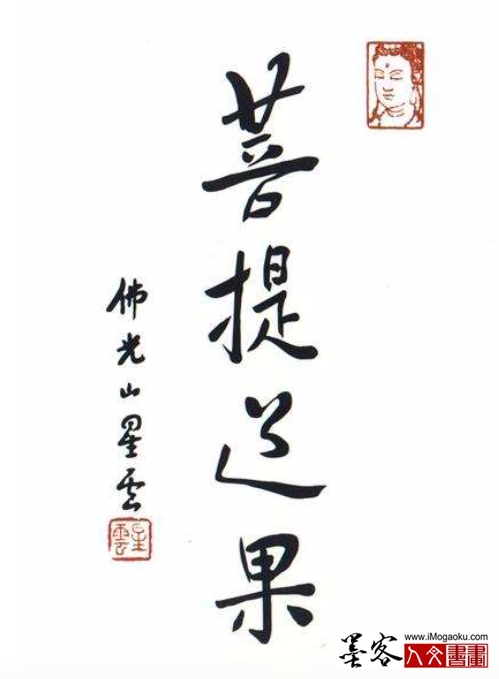 菩提道果
佛光山星雲
星雲
墨客
www.iMogaoku.com
人文書畫